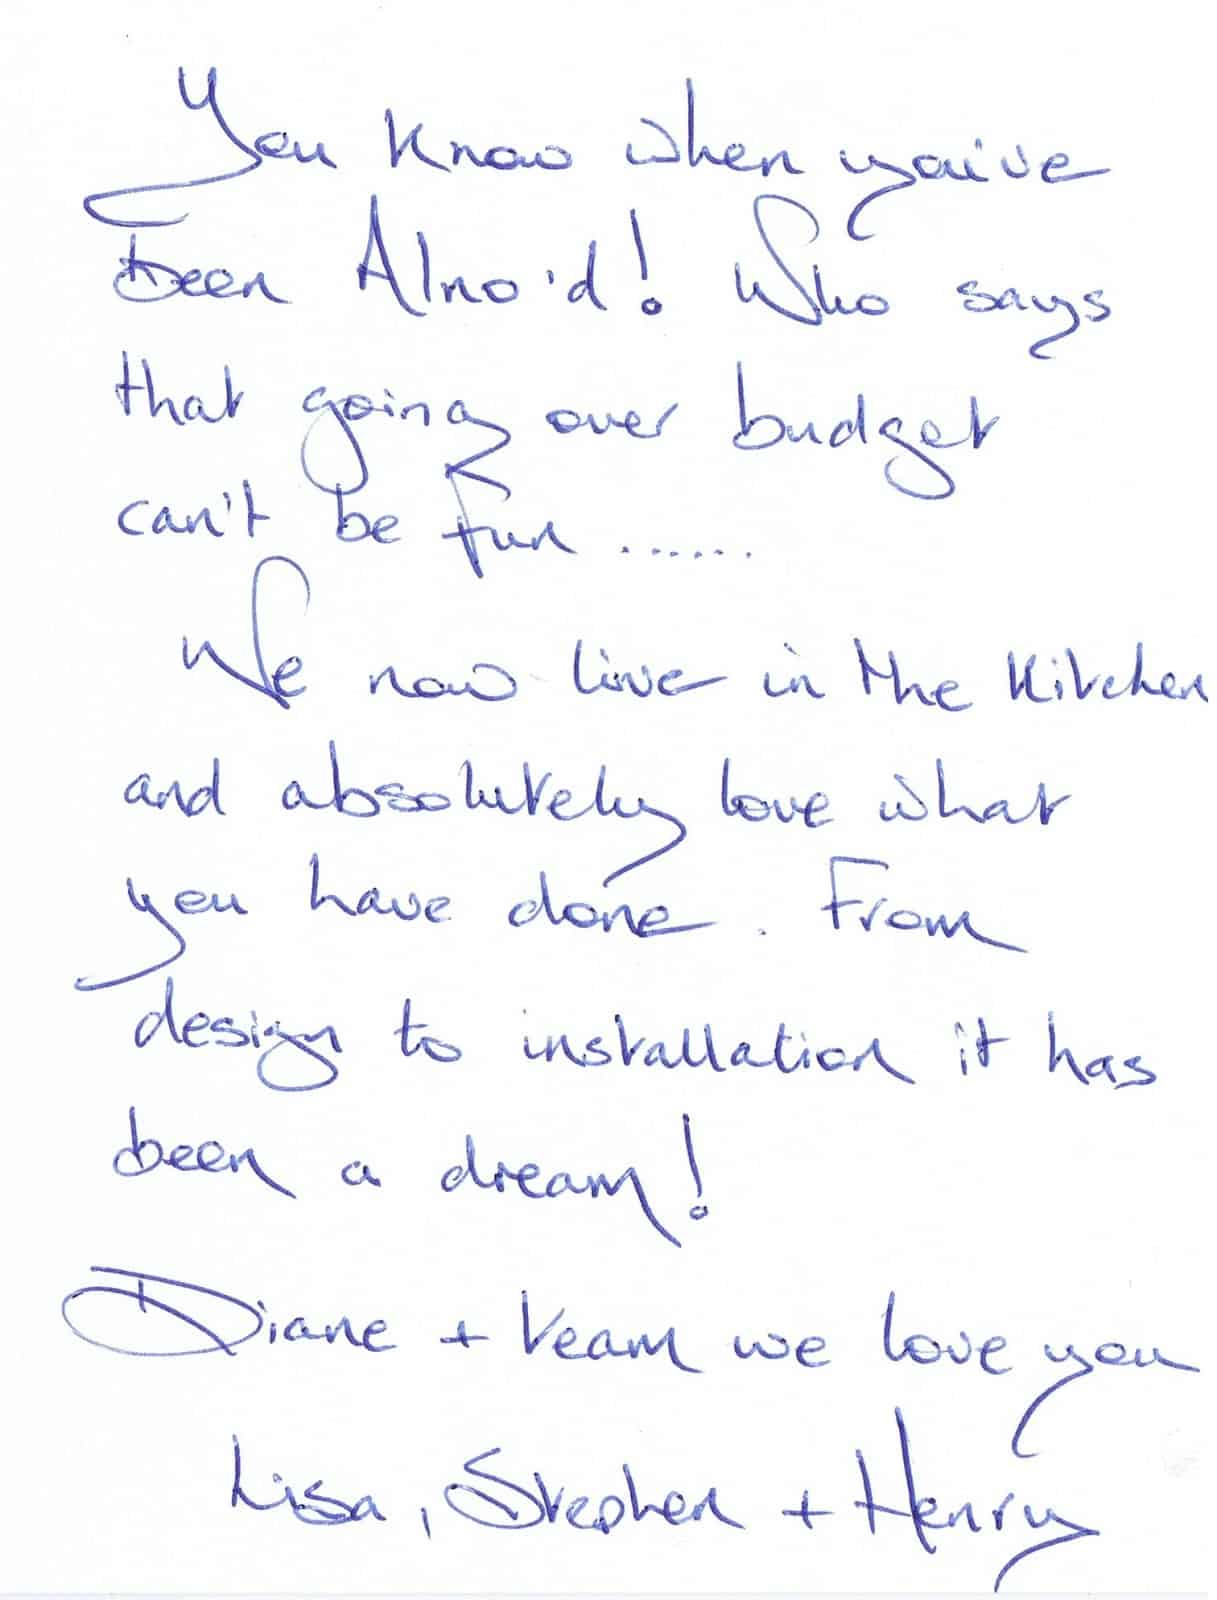 You know when you've
been Alno'd! Who says
that going over budget
can't be fun ......
We now live in the kitchen
and absolutely love what
you have done. From
design to installation it has
been a dream!
Diane + team we love you
Lisa, Stephen + Henry